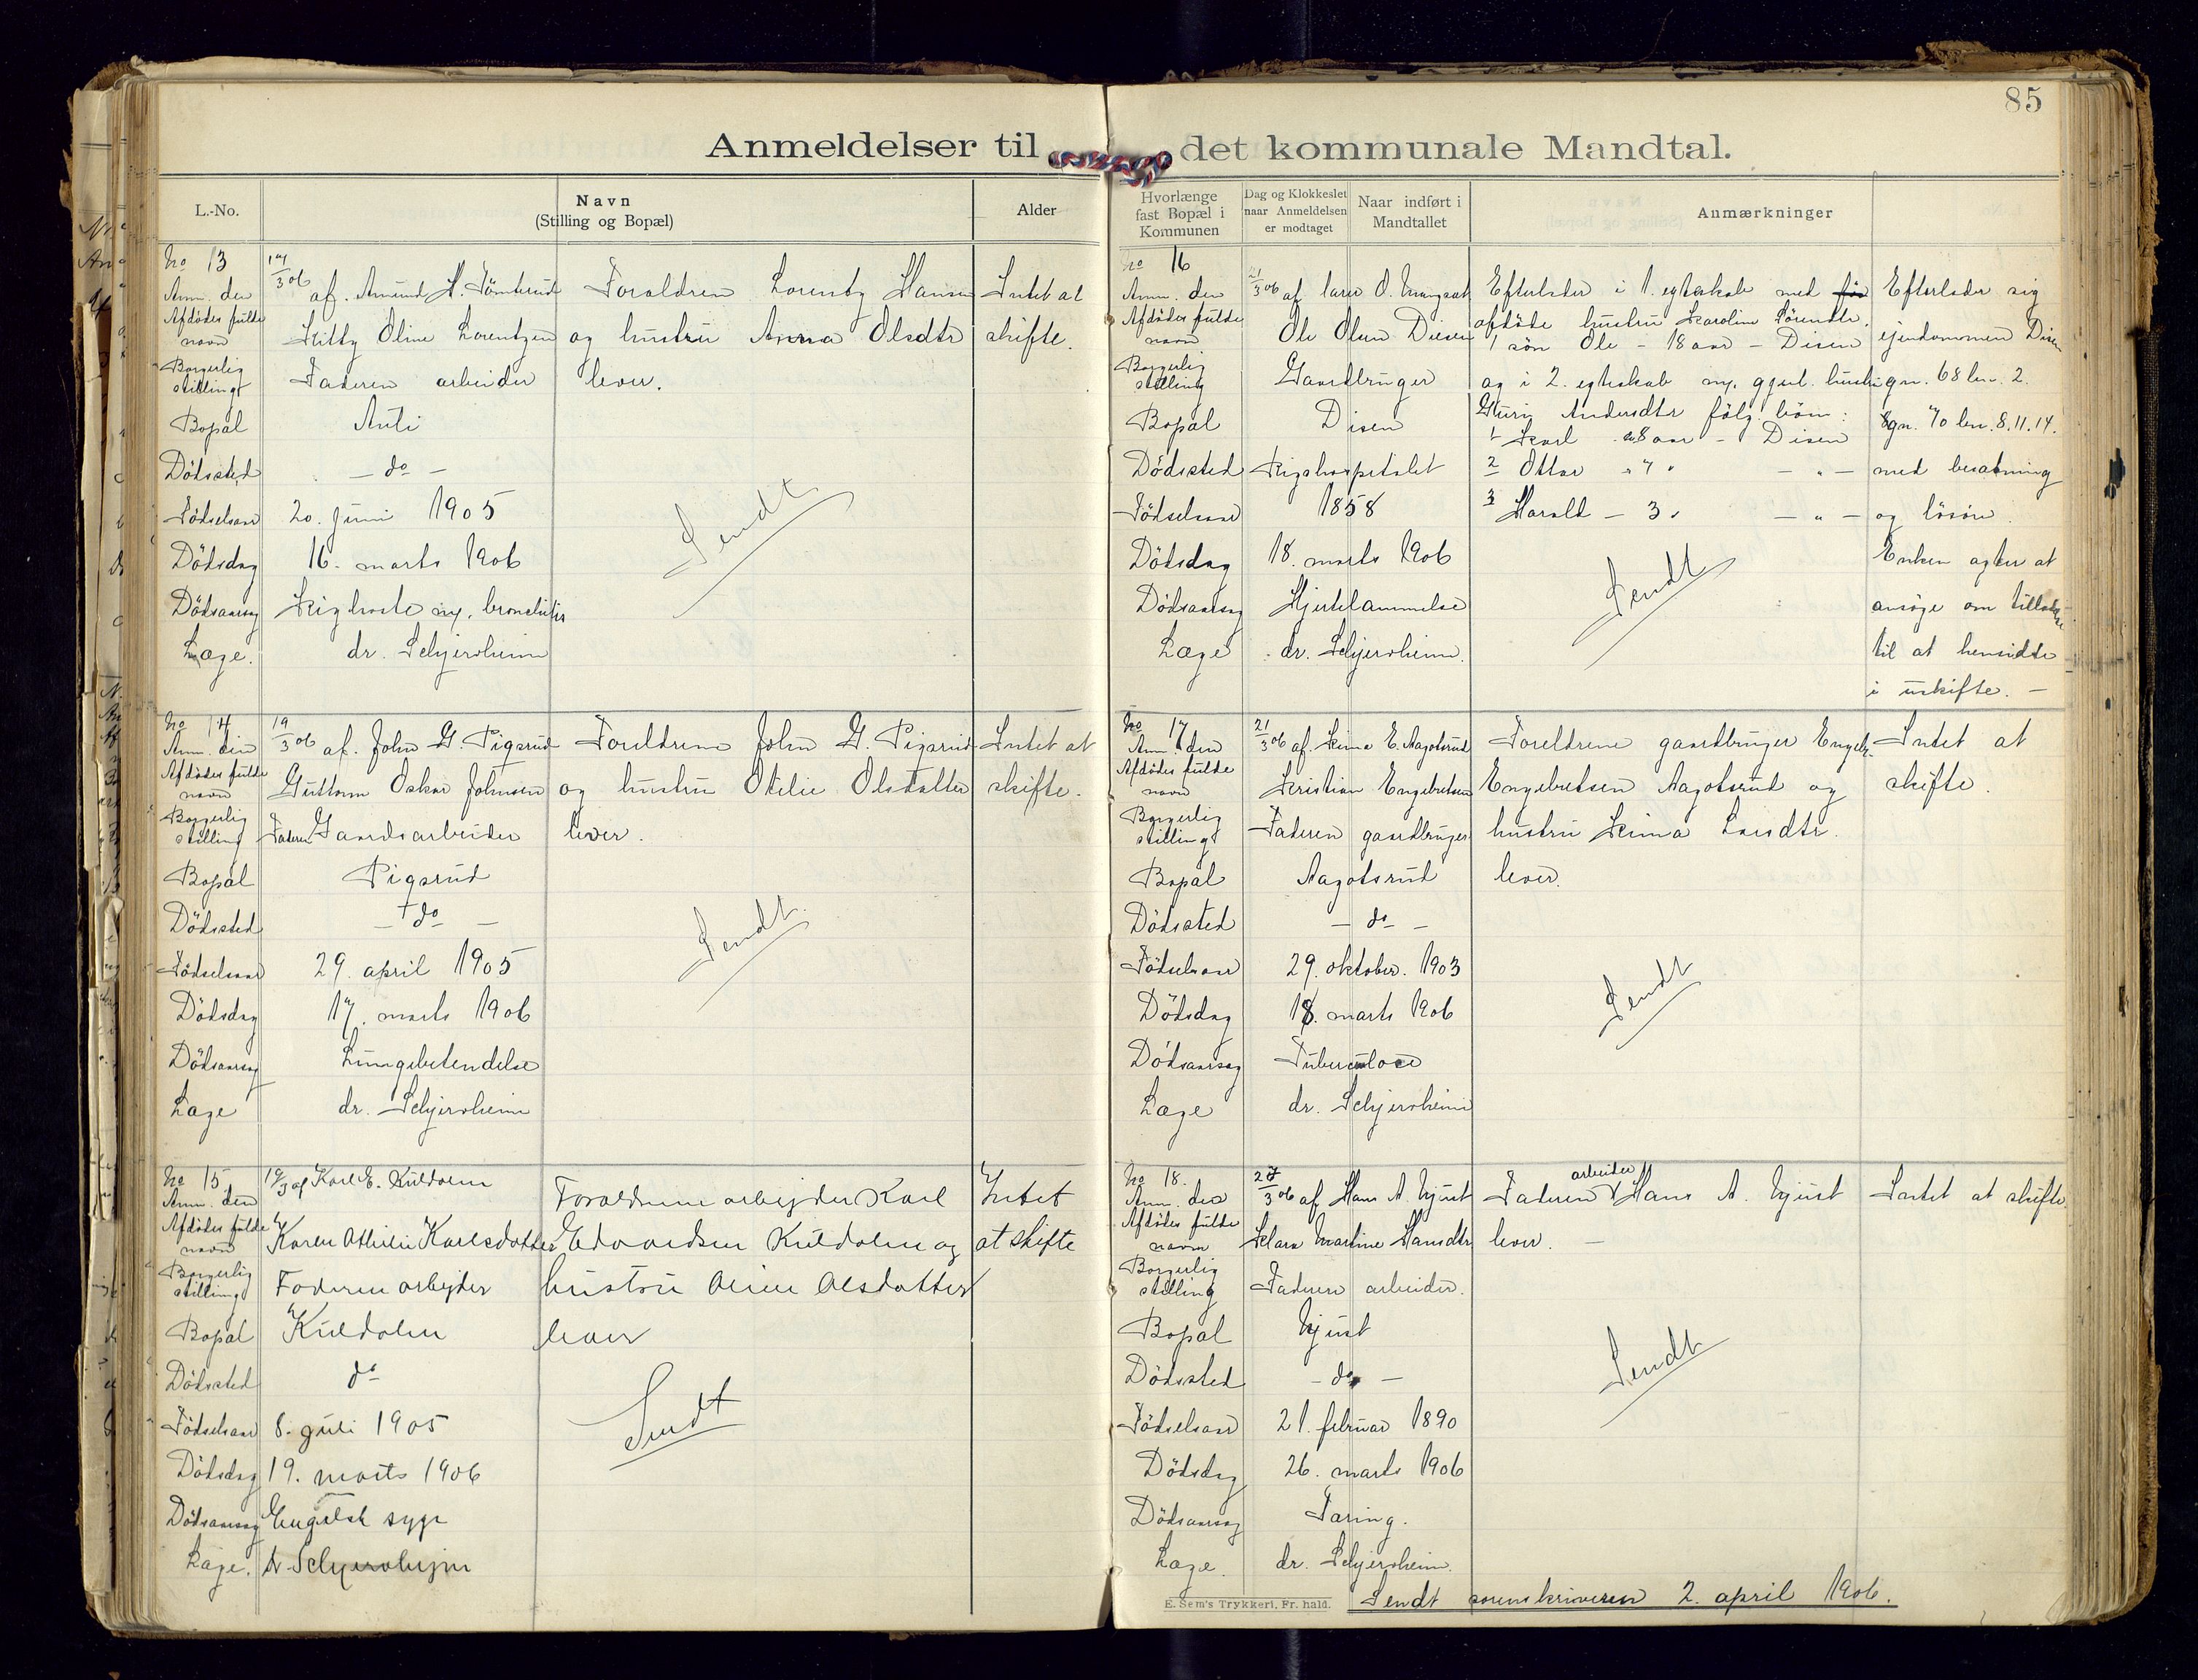 85
Anmeldelser til det kommunale Mandtal.
L.-No.
Navn
(Stilling og Bopæl)
Alder
Hvorlænge
fast Bopæl i
Kommunen
Dag og Klokkeslet
naar Anmeldelsen
er modtaget
Naar indført i
Mandtallet
Anmærkninger
No 13
Anm. den 17/3 06 af. Amund H. Tömterud Foraldren Lorentz Hansen Intet at
Afdödes fulde
navn Kitty Oline Lorentzen og hustru Anna Olsdtr skifte.
Borgerlig
stilling Faderen arbeider lever.
Bopal Anti
Dödssted - do -
Födselsaar 20. juni 1905
Dödsdag 16. marts 1906
Dödsaarsag Kighoste og bronchitis
Læge. dr. Schjerøheim
Sendt
No 14
Anm. den 19/3 06 af. John G. Pigsrud Foreldrene John G. Pigsrud Intet at
Afdödes fulde
navn Guttorm Oskar Johnsen og hustru Otelie Olsdatter skifte.
Borgerlig
stilling Faderen Gaardsarbeider lever.
Bopal Pigsrud
Dödssted - do -
Födselsaar 29. april 1905
Dödsdag 17. marts 1906
Dödsaarsag Lungebetendelse
Læge dr. Schjerøheim
Sendt
No 15
Anm. den 19/3 af Karl E. Kuldolm Foraldrene arbejder Karl Intet
Afdödes fulde
navn Karen Othilie Karlsdotter Edvardsen Kuldolm og at skifte
Borgerlig
stilling Faderen arbejder hustru Oline Olsdotter
Bopal Kuldolm lever
Dödssted do
Födselsaar 8. juli 1905
Dödsdag 19. marts 1906
Dödsaarsag Engelsk syge
Læge. dr Schjerøhejm
Sendt
No 16
Anm. den 21/3 06 af Efterlader i 1. egteskab med Efterlader sig
Afdödes fulde
navn Ole Olsen Disen afdöde hustru Karoline Sörensdtr. ejendommen Disen
1 sön Ole - 18 aar - Disen
Borgerlig
stilling Gaardbruger og i 2. egteskab m. gjenl. hustru gn. 68 bn. 2.
Bopal Disen Guri Andersdtr fölg. börn: gn. 70 bn. 8.11.14.
1 Karl - 8 aar - Disen
Dödssted Rigshospitalet 2 Ottar " 7 " - " - med besatning
Födselsaar 1858 3 Harald - 3 " - " - og lösöre.
Dödsdag 18. marts 1906 Enken agter at
Dödsaarsag Hjertelammelse ansöge om tilladelse
Læge dr. Schjerøheim. til at hensidde
i uskifte. -
Sendt
No 17
Anm. den 21/3 06 af. Kima E. Aagotsrud Foreldrene gaardbruger Engebr. Intet at
Afdödes fulde
navn Kristian Engebretsen Engebretsen Aagotsrud og skifte.
Borgerlig
stilling Faderen gaardbruger hustru Kima Larsdtr.
Bopal Aagotsrud lever.
Dödssted - do -
Födselsaar 29. oktober. 1903
Dödsdag 18. marts 1906
Dödsaarsag Tuberculose
Læge dr. Schjerøheim
Sendt
No 18.
Anm. den 27/3 06 af Hans A. Njust Faderen arbeider Hans A. Njust Intet at skifte
Afdödes fulde
navn Klara Martine Hansdtr lever. -
Borgerlig
stilling Faderen arbeider.
Bopal Njust
Dödssted - do -
Födselsaar 21. februar 1890
Dödsdag 26. marts 1906
Dödsaarsag Taring.
Læge. dr. Schjerøheim.
Sendt
E. Sem's Trykkeri, Fr. hald.
Sendt sorenskriveren 2. april 1906.